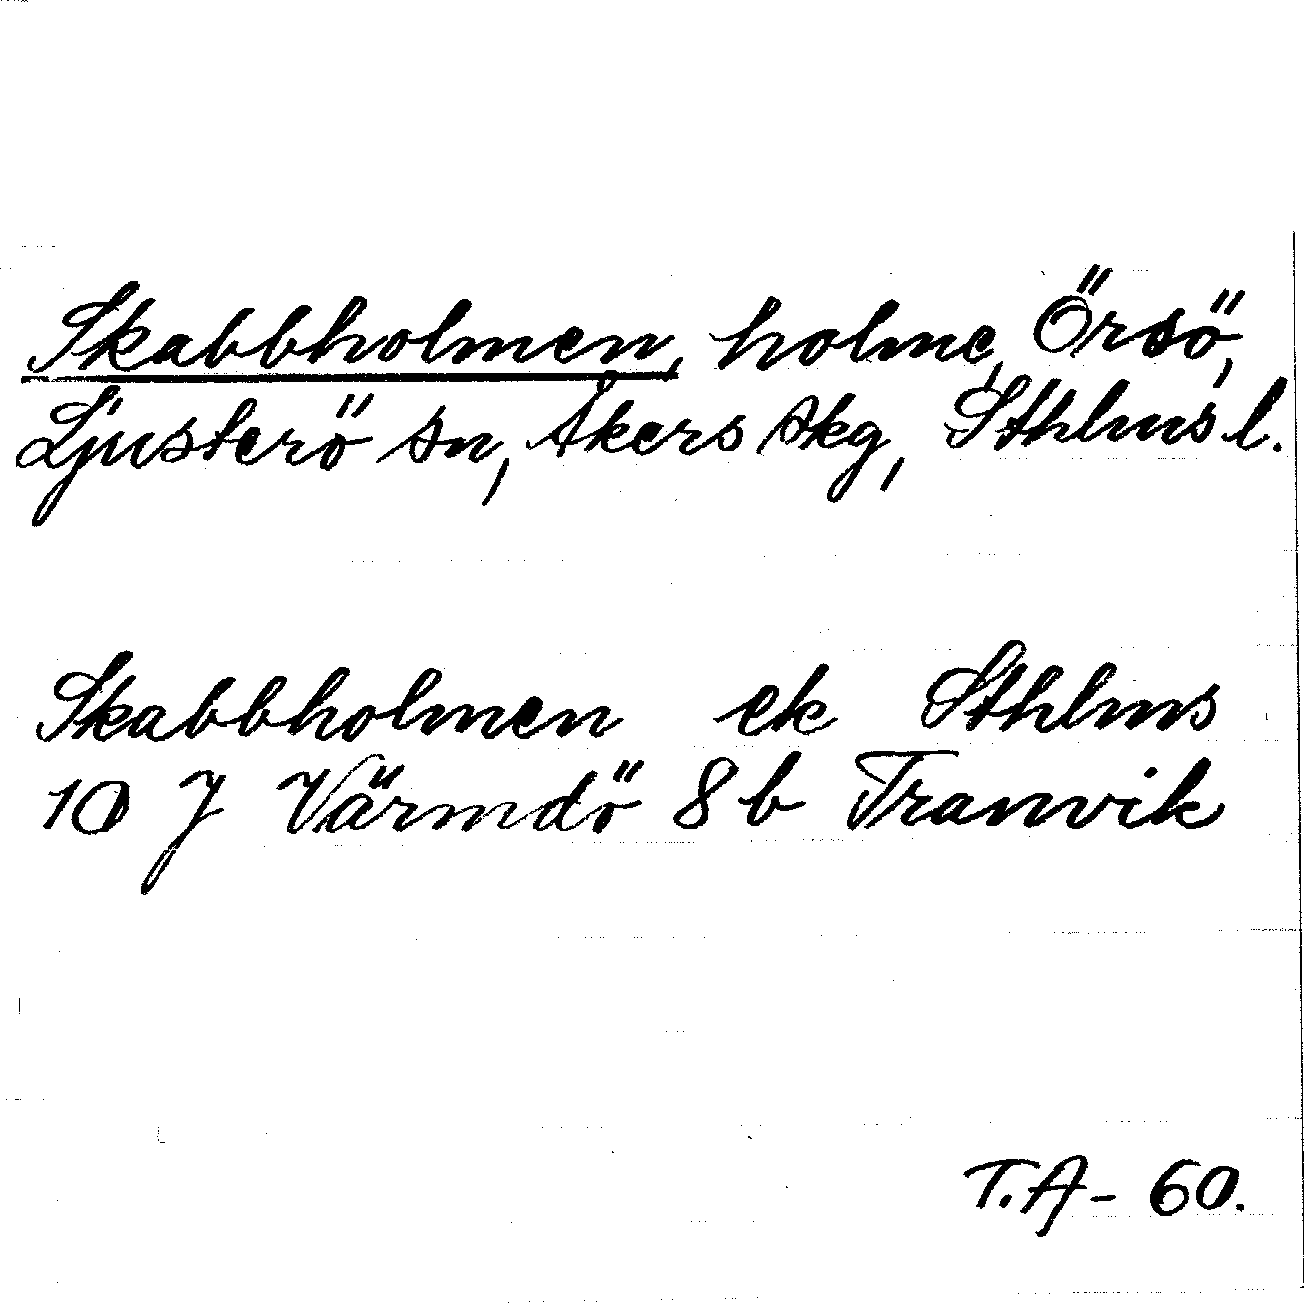 Skabbholmen, holme, Örsö,
Ljusterö sn, Åkers skg, Sthlms l.
Skabbholmen ek Sthlms
10 J Värmdö 8 b Tranvik
T.A - 60.